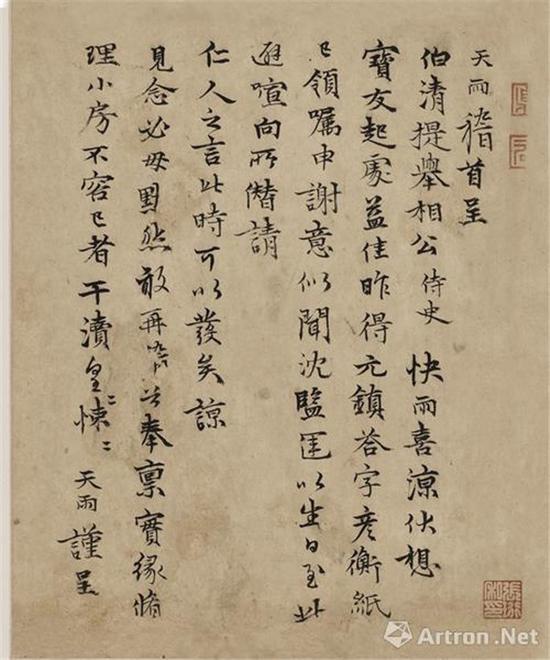 天雨稽首呈
伯清提舉相公侍史 快雨喜涼伏想
寶友起處益佳昨得元鎮答字彥衡紙
已領囑申謝意似聞沈監匡以生日至此
避喧向所僭請
仁人之言此時可以發矣諒
見念必毋默然敢再稽首奉稟實緣脩
理小房不容已者干瀆皇〻悚〻
天雨謹呈
Artron.Net